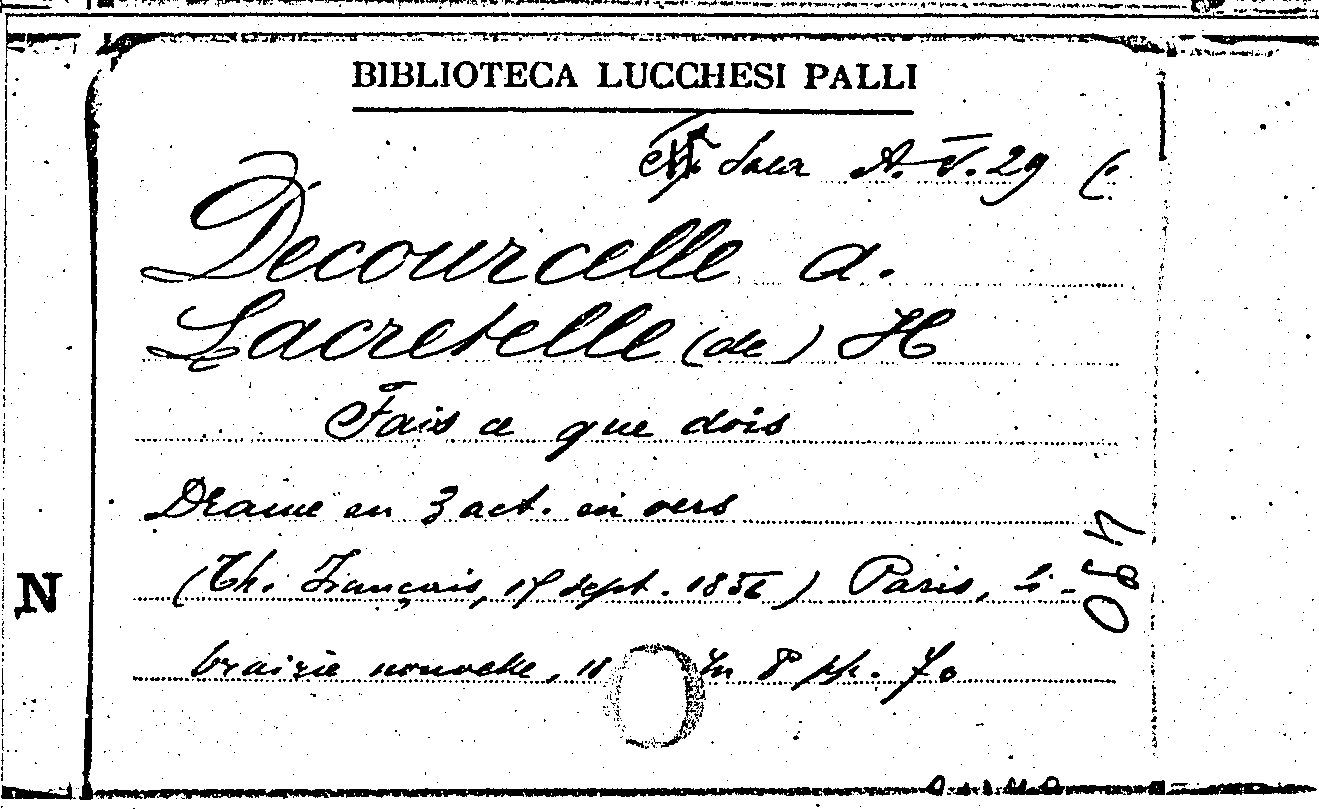 BIBLIOTECA LUCCHESI PALLI
Sala A. V. 29 (.
Decourcelle A.
Lacretelle (de) H
Fais ce que dois
Drame en 3 act. en vers
(Th. Français, sept. 1856) Paris, Li-
N
brairie nouvelle, 18 In 8 pp. 70
490